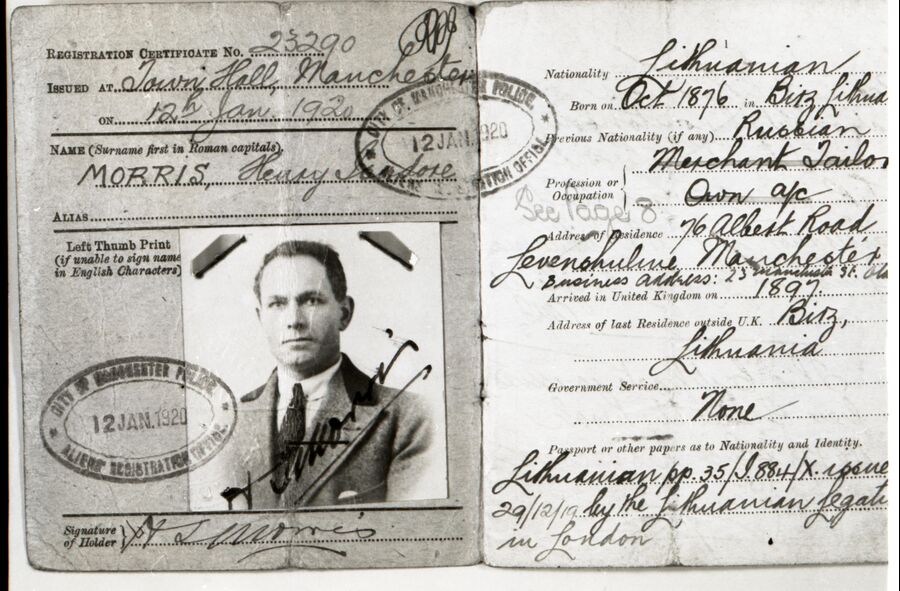 REGISTRATION CERTIFICATE No. 23290
ISSUED AT Town Hall, Manchester
ON 12th Jan. 1920
NAME (Surname first in Roman capitals).
MORRIS, Henry
ALIAS
Left Thumb Print
(if unable to sign name
in English Characters)
CITY OF MANCHESTER POLICE.
12 JAN. 1920
ALIENS REGISTRATION OFFICE.
CITY OF MANCHESTER POLICE.
12 JAN. 1920
ALIENS' REGISTRATION OFFICE.
H S Morris
Signature of Holder H S Morris
Nationality Lithuanian
Born on Oct 1876 in Birz Lithua
Previous Nationality (if any) Russian
Merchant Tailor
Profession or Occupation Own a/c
See Page 8
Address of Residence 76 Albert Road
Levenshulme Manchester
Business address: 23 Manchester St.
Arrived in United Kingdom on 1897.
Address of last Residence outside U.K. Birz,
Lithuania
Government Service
None
Passport or other papers as to Nationality and Identity.
Lithuanian pp. 35/J.884/X. issue
29/12/19 by the Lithuanian Legati
in London